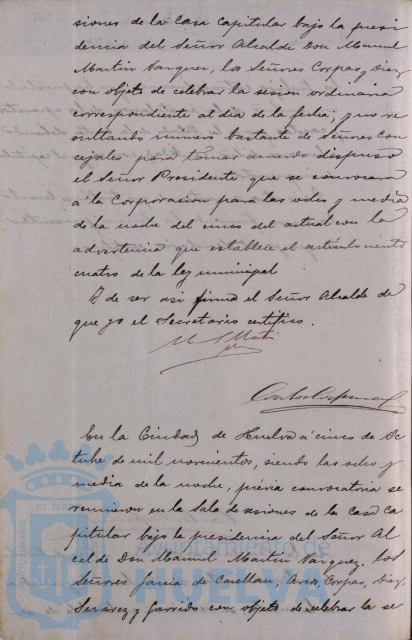 siones de la Casa Capitular bajo la presi
dencia del Señor Alcalde Don Manuel
Martin Vazquez, los Señores Corpas, Diaz
con objeto de celebrar la sesion ordinaria
correspondiente al dia de la fecha; y no re
sultando número bastante de Señores Con
cejales para tomar acuerdo dispuso
el Señor Presidente que se convocara
a la Corporacion para las ocho y media
de la noche del cinco del actual con la
advertencia que establece el articulo ciento
cuatro de la ley municipal
Y de ser asi firma el Señor Alcalde de
que yo el Secretario certifico.
En la Ciudad de Huelva á cinco de Oc
tubre de mil novecientos, siendo las ocho y
media de la noche, prévia convocatoria se
reunieron en la Sala de sesiones de la Casa Ca
pitular bajo la presidencia del Señor Al
calde Don Manuel Martin Vazquez, los
Señores Garcia de Casellan, Arco, Corpas, Diaz,
Suarez y Garrido con objeto de celebrar la se
HUELVA